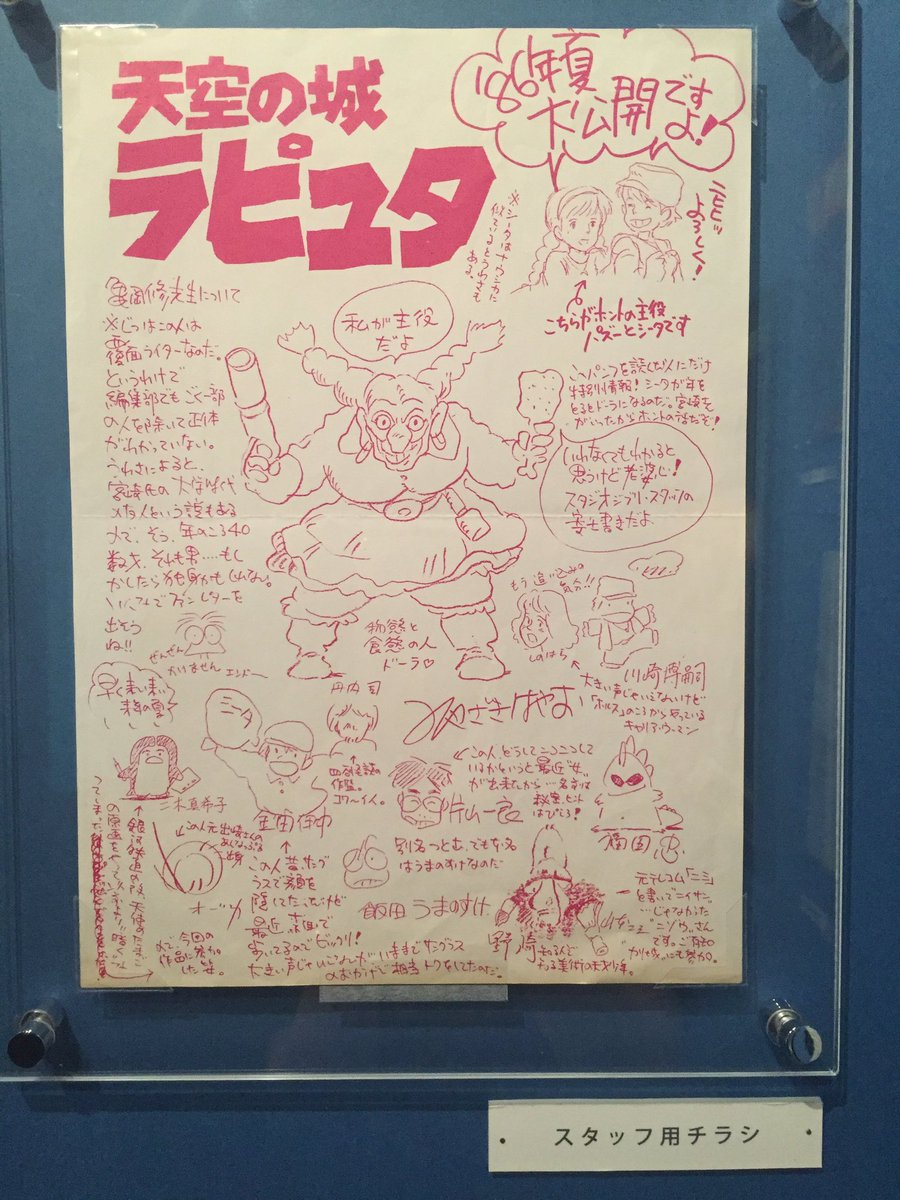 天空の城
ラピュタ
'86年夏
大公開です
よ!
ニヒヒッ
よろしく!
※シータはナウシカに
似ているとうわさも
ある。
こちらがホントの主役
パズーとシータです
亀岡修先生について
※じつはこの人は
覆面ライターなのだ。
というわけで
編集部でもごく一部
の人を除いて正体
がわかっていない。
うわさによると、
宮崎氏の大学時代
の友人という説もある
ので、そう、年のころ40
数才、それも男……もし
かしたら独身かもしれない。
ファンレターを
出そう
ね!!
私が主役
だよ
このパンフを読んだ人にだけ
特別情報!シータが年を
とるとドーラになるのだ。宮崎さん
がいったからホントの話だぞ!
いわなくてもわかると
思うけど老婆心!
スタジオジブリ・スタッフの
寄せ書きだよ
物慾と
食慾の人
ドーラ♡
丹内司
もう追い込みの
気分!!
しのはら
川崎博嗣
大きい声じゃいえないけど
「ホルス」のころからやっている
キャリア・ウーマン
ぜんぜん
かけません
エンドー
早く来い来い
来年の夏
二木真希子
ニータ
金田伊功
四創会談の
作監。
コワ〜イ人。
みやざきはやお
この人、どうしてニコニコして
いるかというと最近"女"
が出来たから…名前は
秘密。ヒント
はびじろ!
片山一良
福田忠
この人元出崎さんの
あんなぷる
出身
オーツカ
ので、今回の
作品に参加
した。
この人昔、サング
ラスで顔を
隠してたんだけど
最近素顔で
歩ってるのでビックリ!
大きい声じゃいえないがいままでサングラス
のおかげで相当トクをしてたのだ。
別名つとむ、でも本名
はうまのすけなのだ
飯田うまのすけ
野崎
知る人ぞ
知る美術の天才少年。
元テレコム「ニミ」
と書いてニイサン。
…じゃなかった
"ニゾウ"さん
です。
スタッフ用チラシ